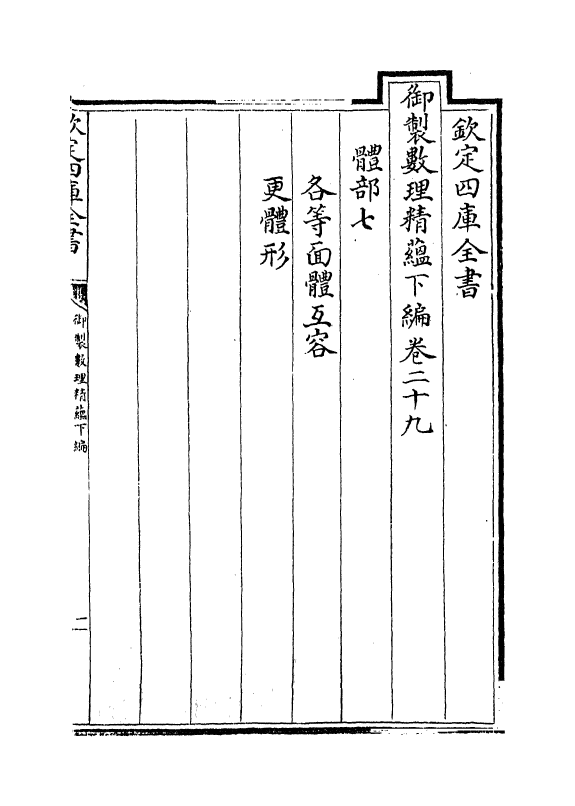 欽定四庫全書
御製數理精蘊下編卷二十九
體部七
各等面體互容
更體形
欽定四庫全書
御製數理精蘊下編
二